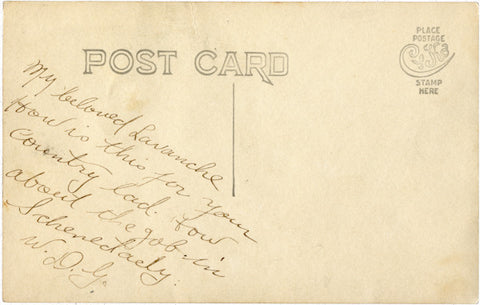 POST CARD
PLACE
POSTAGE
STAMP
HERE
My beloved Lavanche
How is this for your
country lad. How
about the job in
Schenedady.
W. D. G.